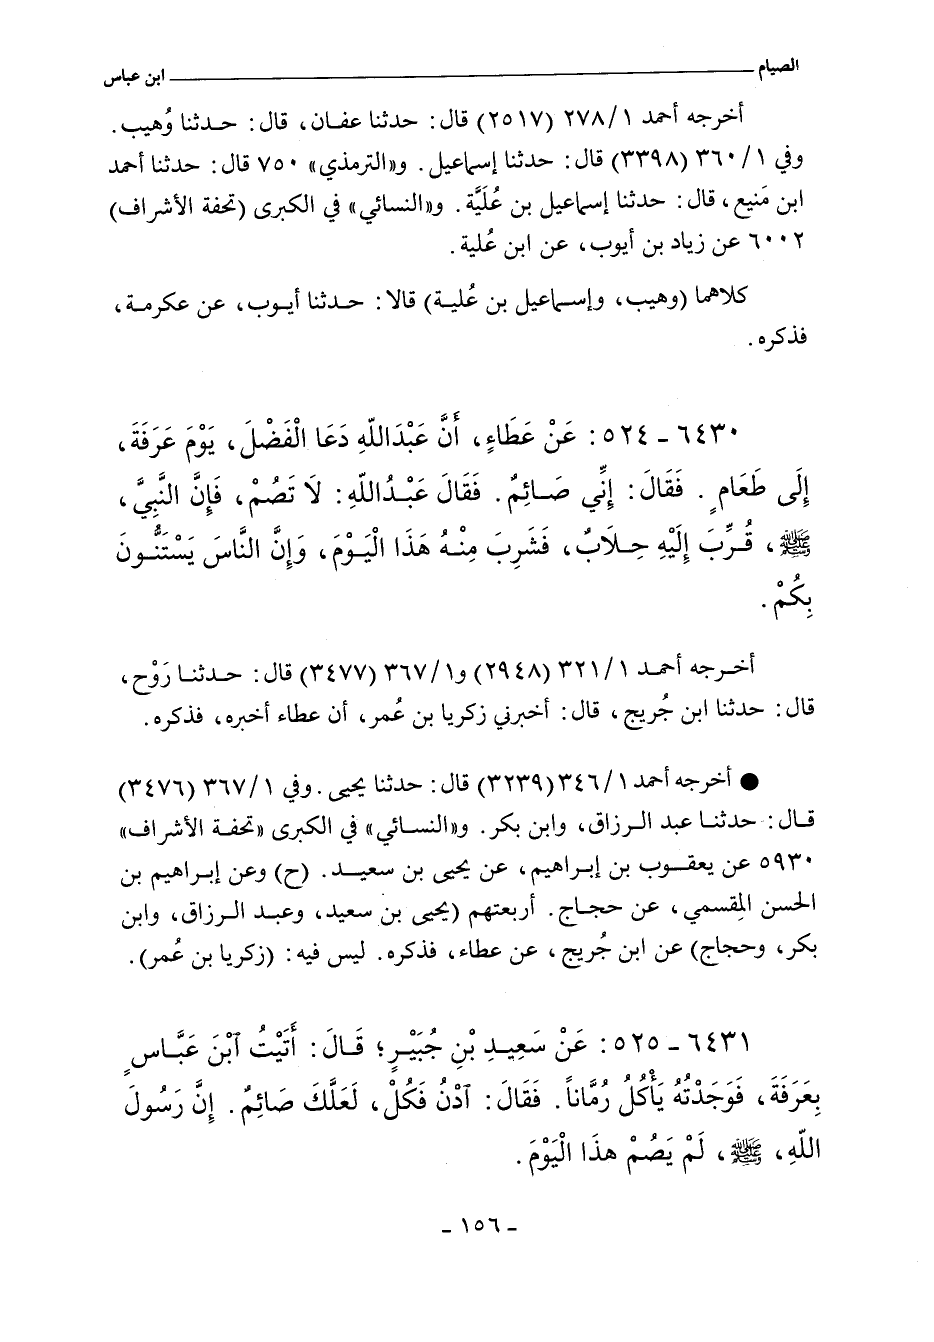 الصيام ــــــــــــــــــــــــــــــ ابن عباس
أخرجه أحمد ٢٧٨/١ (٢٥١٧) قال: حدثنا عفان، قال: حدثنا وُهيب.
وفي ٣٦٠/١ (٣٣٩٨) قال: حدثنا إسماعيل. و«الترمذي» ٧٥٠ قال: حدثنا أحمد
ابن مَنيع، قال: حدثنا إسماعيل بن عُلَيَّة. و«النسائي» في الكبرى (تحفة الأشراف)
٦٠٠٢ عن زياد بن أيوب، عن ابن عُلية.
كلاهما (وهيب، وإسماعيل بن عُلية) قالا: حدثنا أيوب، عن عكرمة،
فذكره.
٦٤٣٠ - ٥٢٤: عَنْ عَطَاءٍ، أَنَّ عَبْدَاللّهِ دَعَا الْفَضْلَ، يَوْمَ عَرَفَةَ،
إِلَى طَعَامٍ. فَقَالَ: إِنِّي صَائِمٌ. فَقَالَ عَبْدُاللّهِ: لَا تَصُمْ، فَإِنَّ النَّبِيَّ،
ﷺ، قُرِّبَ إِلَيْهِ حِلَابٌ، فَشَرِبَ مِنْهُ هَذَا الْيَوْمَ، وَإِنَّ النَّاسَ يَسْتَنُّونَ
بِكُمْ.
أخرجه أحمد ٣٢١/١ (٢٩٤٨) و٣٦٧/١ (٣٤٧٧) قال: حدثنا رَوْح،
قال: حدثنا ابن جُريج، قال: أخبرني زكريا بن عُمر، أن عطاء أخبره، فذكره.
● أخرجه أحمد ٣٤٦/١ (٣٢٣٩) قال: حدثنا يحيى. وفي ٣٦٧/١ (٣٤٧٦)
قال: حدثنا عبد الرزاق، وابن بكر. و«النسائي» في الكبرى «تحفة الأشراف»
٥٩٣٠ عن يعقوب بن إبراهيم، عن يحيى بن سعيد. (ح) وعن إبراهيم بن
الحسن المِقسمي، عن حجاج. أربعتهم (يحيى بن سعيد، وعبد الرزاق، وابن
بكر، وحجاج) عن ابن جُريج، عن عطاء، فذكره. ليس فيه: (زكريا بن عُمر).
٦٤٣١ - ٥٢٥: عَنْ سَعِيدِ بْنِ جُبَيْرٍ؛ قَالَ: أَتَيْتُ ٱبْنَ عَبَّاسٍ
بِعَرَفَةَ، فَوَجَدْتُهُ يَأْكُلُ رُمَّاناً. فَقَالَ: ٱدْنُ فَكُلْ، لَعَلَّكَ صَائِمٌ. إِنَّ رَسُولَ
اللّهِ، ﷺ، لَمْ يَصُمْ هذَا الْيَوْمَ.
- ١٥٦ -